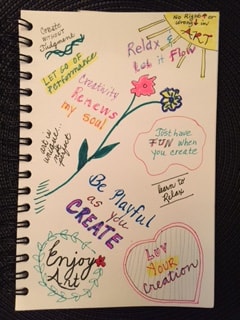 Create
WITHOUT
Judgment
No Right or
wrong in
ART
Relax &
Let it Flow
LET GO OF
PERFORMANCE
Creativity
Renews
my soul
unique
not
perfect
Just have
FUN when
you create
learn to
Relax
Be Playful
as you
CREATE
Enjoy
Art
LOVE
YOUR
Creation